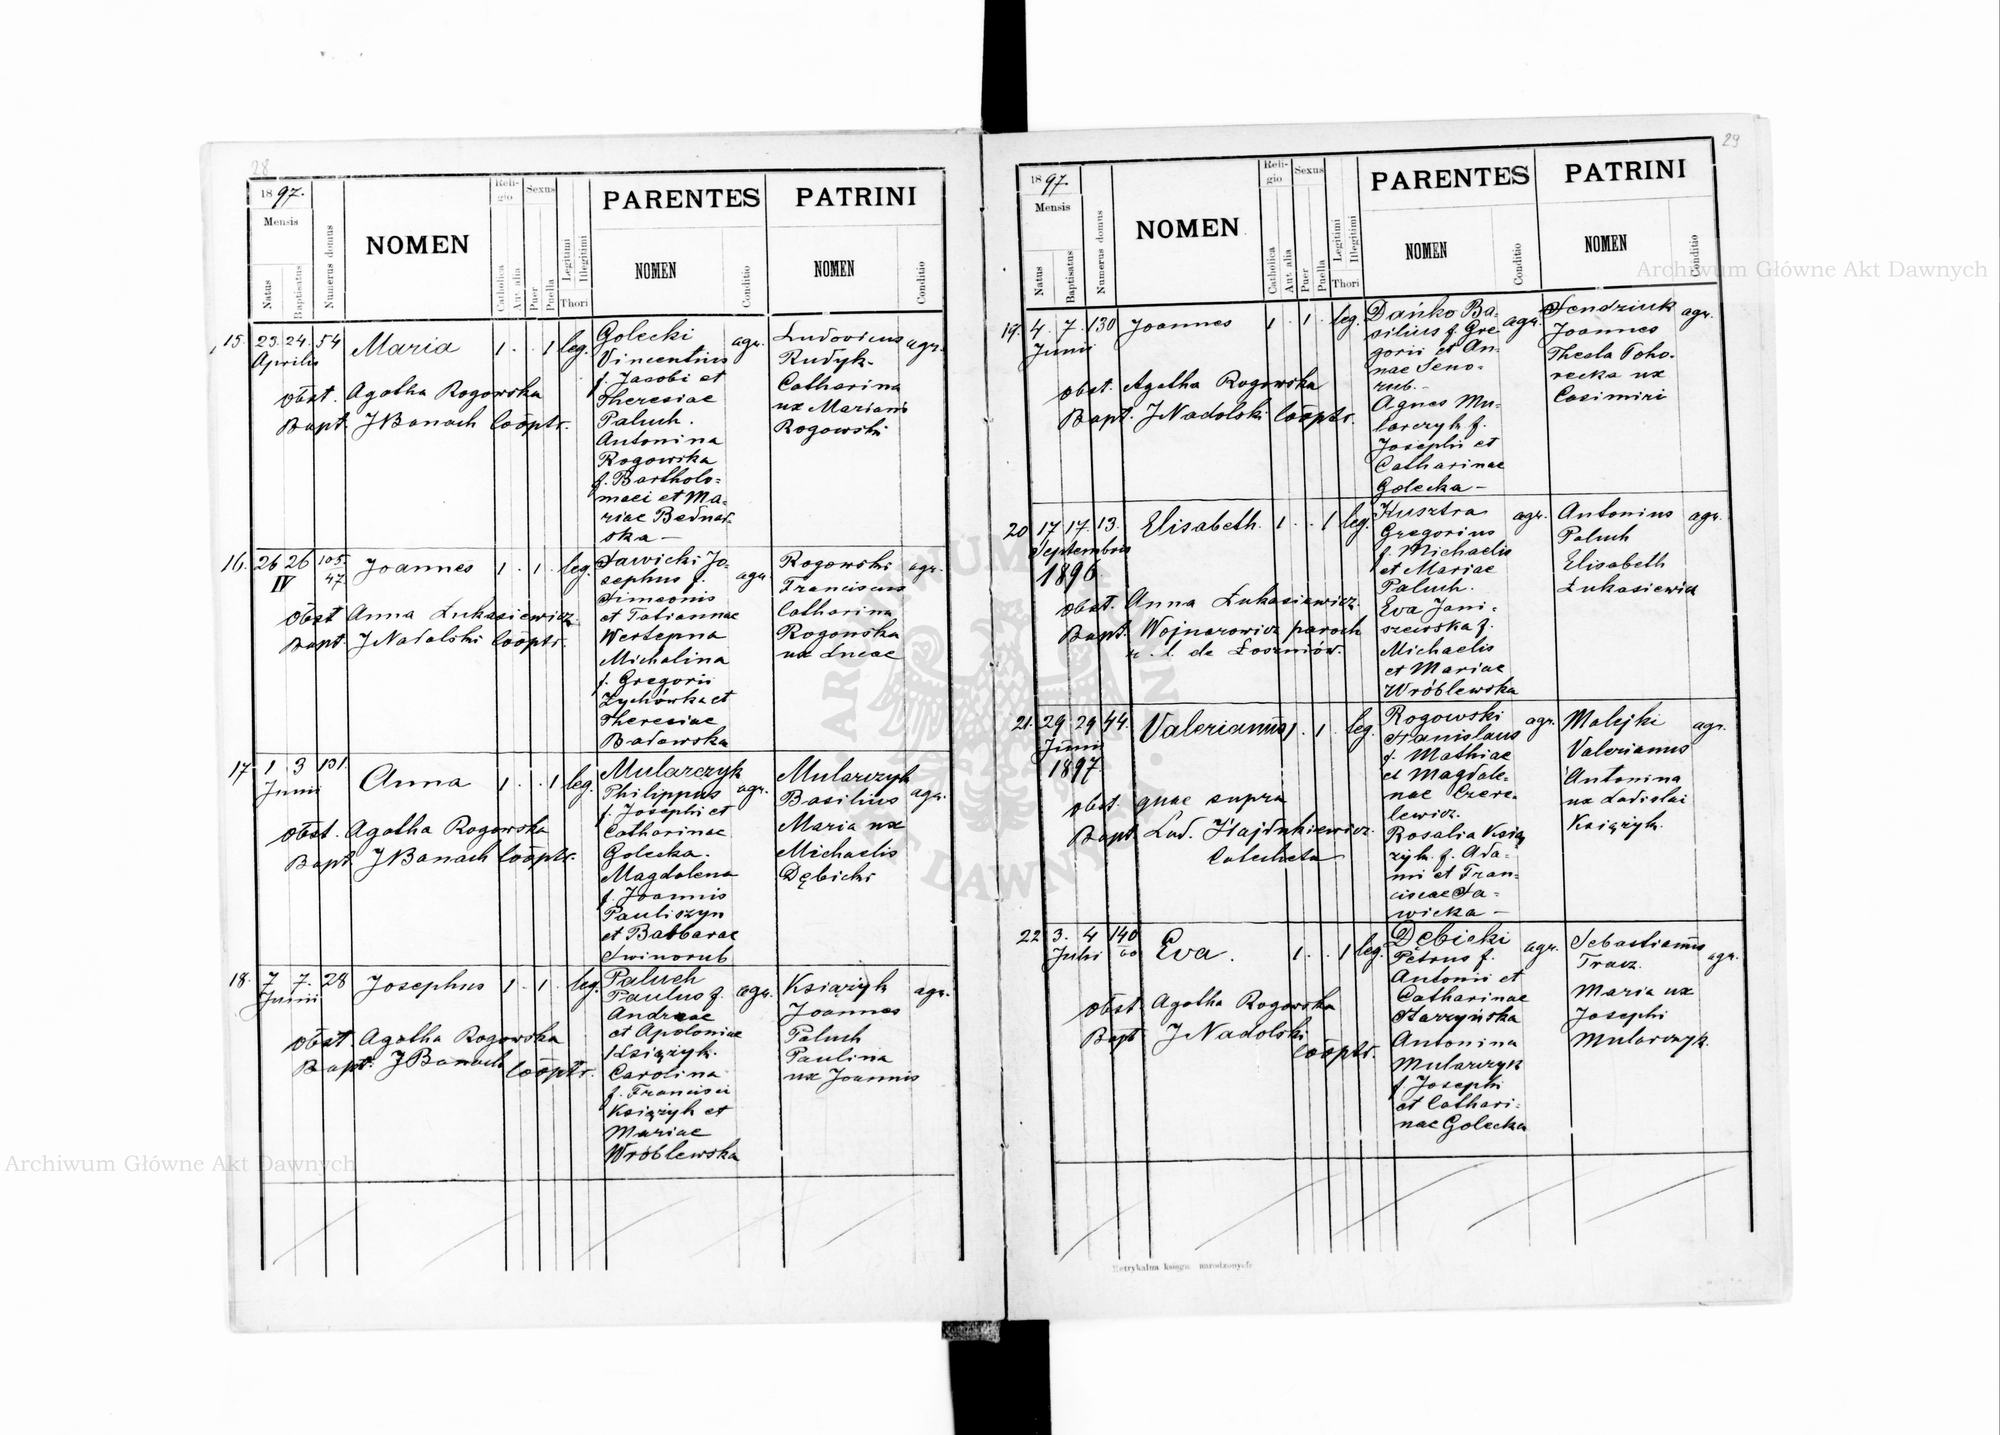 28
1897.
Mensis
Natus
Baptisatus
Numerus domus
NOMEN
Religio
Catholica
Aut alia
Sexus
Puer
Puella
Legitimi
Illegitimi
Thori
PARENTES
NOMEN
Conditio
PATRINI
NOMEN
Conditio
15. 23. 24. 54
Aprilis
Maria 1 . . 1 leg.
Golecki agr.
Vincentius
f. Jacobi et
Theresiae
Paluch.
Antonina
Rogowska
f. Bartholo-
maei et Ma-
riae Bednar-
ska —
Ludovicus agr.
Rudyk.
Catharina
ux Mariani
Rogowski
obst. Agatha Rogowska
Bapt. J Banach Cooptr.
16. 26 26 105/47
IV
Joannes 1 . 1 . leg.
Sawicki Jo- agr.
sephus f.
Simeonis
et Tatiannae
Wertepna
Michalina
f. Gregorii
Zychówka et
Theresiae
Badowska
Rogowski agr.
Franciscus
Catharina
Rogowska
ux Lucae
obst Anna Łukasiewicz.
Bapt. J Nadolski Cooptr.
17 1 3 131.
Junii
Anna 1 . . 1 leg.
Mularczyk
Philippus agr.
f. Josephi et
Catharinae
Golecka.
Magdalena
f. Joannis
Pauliszyn
et Barbarae
Swinorub
Mularczyk
Basilius agr.
Maria ux
Michaelis
Dębicki
obst. Agatha Rogowska
Bapt J Banach Cooptr.
18. 7 7. 28
Junii
Josephus 1 . 1 . leg.
Paluch
Paulus f. agr.
Andreae
et Apoloniae
Książyk.
Carolina
f. Francisci
Książyk et
Mariae
Wróblewska
Książyk agr.
Joannes
Paluch
Paulina
ux Joannis
obst Agatha Rogowska
Bapt. J Banach Cooptr.
29
1897.
Mensis
Natus
Baptisatus
Numerus domus
NOMEN
Religio
Catholica
Aut alia
Sexus
Puer
Puella
Legitimi
Illegitimi
Thori
PARENTES
NOMEN
Conditio
PATRINI
NOMEN
Conditio
19. 4. 7. 130
Junii
Joannes 1 . 1 . leg.
Dańko Ba-
silius f. Gre- agr.
gorii et An-
nae Seno-
rub. -
Agnes Mu-
larczyk f.
Josephi et
Catharinae
Golecka —
Sendziuk agr.
Joannes
Thecla Poho-
recka ux
Casimiri
obst. Agatha Rogowska
Bapt. J Nadolski Cooptr.
20 17 17. 13.
Septembris
1896.
Elisabeth. 1 . . 1 leg.
Kusztra agr.
Gregorius
f. Michaelis
et Mariae
Paluch.
Eva Jani-
szewska f.
Michaelis
et Mariae
Wróblewska
Antonius agr.
Paluch
Elisabeth
Łukasiewicz
obst. Anna Łukasiewicz.
Bapt. Wojnarowicz paroch
r. l. de Łoszniów.
21. 29 29 44.
Junii
1897
Valerianus 1 . 1 . leg.
Rogowski agr.
Stanislaus
f. Mathiae
et Magdale-
nae Czere-
lewicz.
Rosalia Ksią-
zyk. f. Ada-
mi et Fran-
ciscae Sa-
wicka —
Malejki agr.
Valerianus
Antonina
ux Ladislai
Książyk.
obst. quae supra
Bapt Lud. Hajdukiewicz.
Catecheta
22 3. 4 140/60
Julii
Eva . 1 . . 1 leg.
Dębicki agr.
Petrus f.
Antonii et
Catharinae
Starzyńska
Antonina
Mularczyk
f. Josephi
et Cathari-
nae Golecka
Sebastianus agr.
Tracz.
Maria ux
Josephi
Mularczyk.
obst. Agatha Rogowska
Bapt J Nadolski
Cooptr.
Metrykalna księga narodzonych
Archiwum Główne Akt Dawnych
Archiwum Główne Akt Dawnych